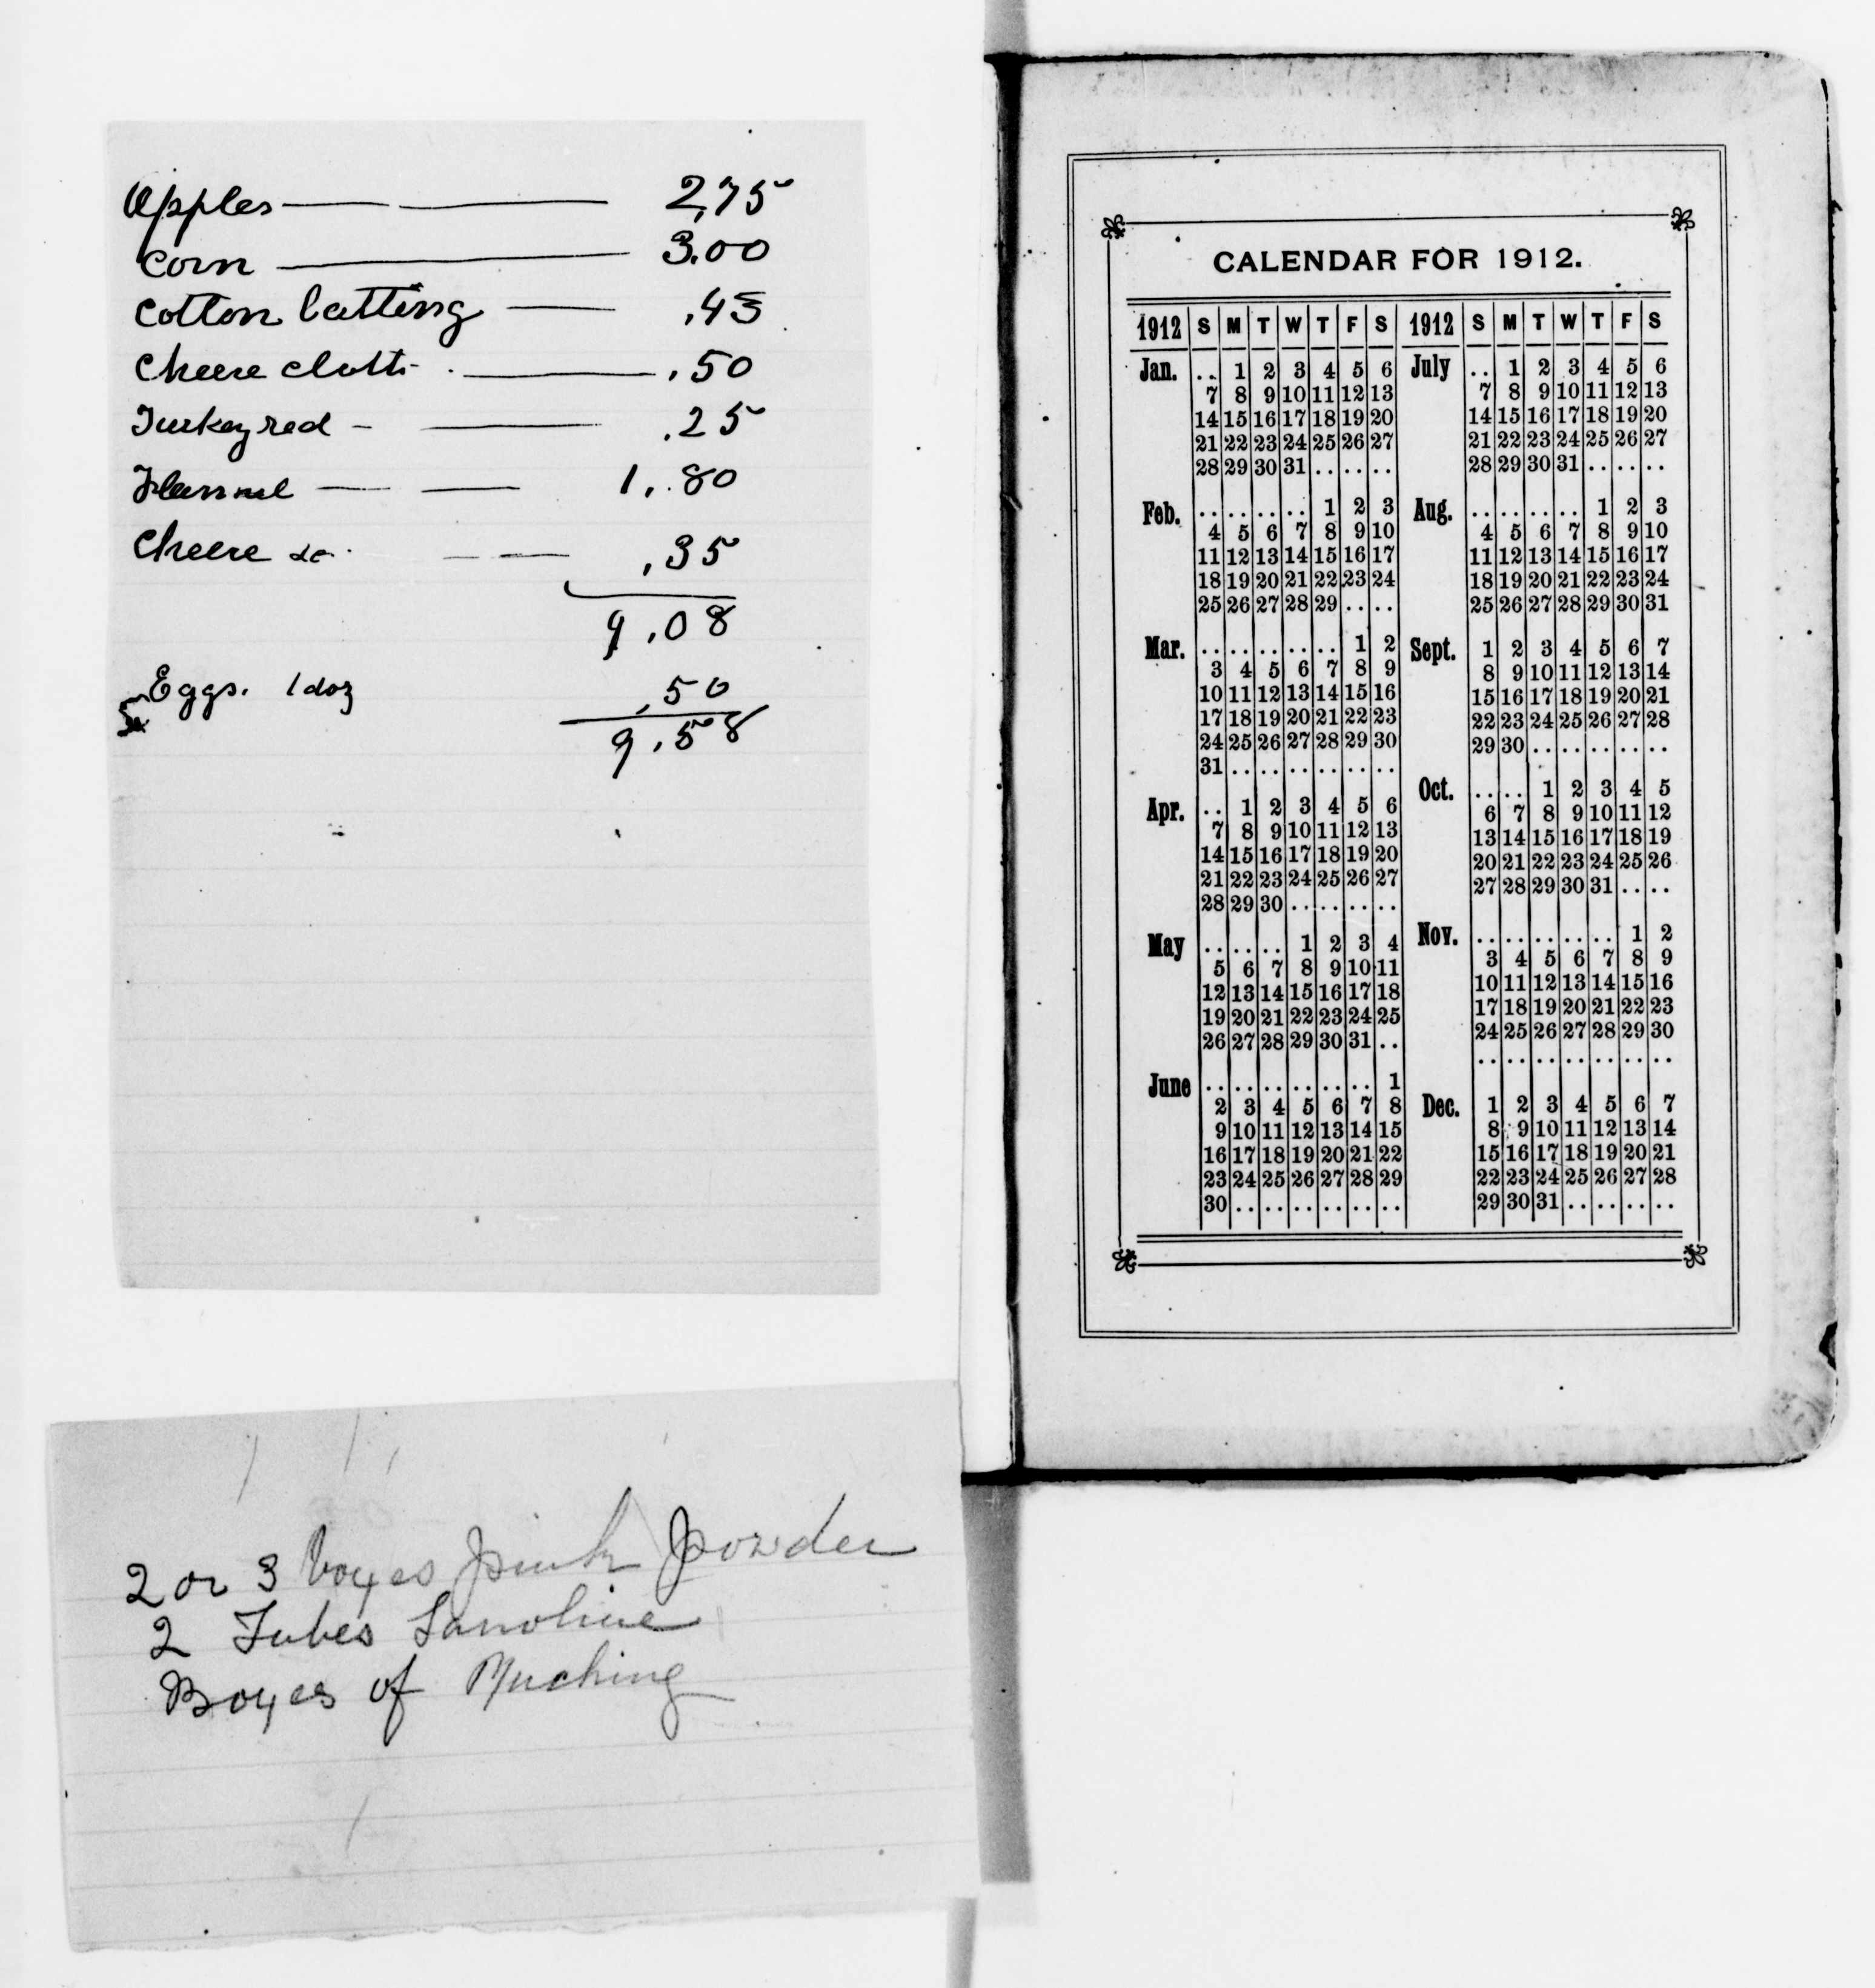 Apples 2,75
Corn 3.00
Cotton batting .43
Cheese cloth .50
Turkey red .25
Flannel 1.80
Cheese do .35
9.08
Eggs. 1 doz .50
9.58
2 or 3 boxes pink powder
2 Tubes Lanoline
Boxes of Ruching
CALENDAR FOR 1912.
1912 S M T W T F S
Jan. .. 1 2 3 4 5 6
7 8 9 10 11 12 13
14 15 16 17 18 19 20
21 22 23 24 25 26 27
28 29 30 31 .. .. ..
Feb. .. .. .. .. 1 2 3
4 5 6 7 8 9 10
11 12 13 14 15 16 17
18 19 20 21 22 23 24
25 26 27 28 29 .. ..
Mar. .. .. .. .. .. 1 2
3 4 5 6 7 8 9
10 11 12 13 14 15 16
17 18 19 20 21 22 23
24 25 26 27 28 29 30
31 .. .. .. .. .. ..
Apr. .. 1 2 3 4 5 6
7 8 9 10 11 12 13
14 15 16 17 18 19 20
21 22 23 24 25 26 27
28 29 30 .. .. .. ..
May .. .. .. 1 2 3 4
5 6 7 8 9 10 11
12 13 14 15 16 17 18
19 20 21 22 23 24 25
26 27 28 29 30 31 ..
June .. .. .. .. .. .. 1
2 3 4 5 6 7 8
9 10 11 12 13 14 15
16 17 18 19 20 21 22
23 24 25 26 27 28 29
30 .. .. .. .. .. ..
1912 S M T W T F S
July .. 1 2 3 4 5 6
7 8 9 10 11 12 13
14 15 16 17 18 19 20
21 22 23 24 25 26 27
28 29 30 31 .. .. ..
Aug. .. .. .. .. 1 2 3
4 5 6 7 8 9 10
11 12 13 14 15 16 17
18 19 20 21 22 23 24
25 26 27 28 29 30 31
Sept. 1 2 3 4 5 6 7
8 9 10 11 12 13 14
15 16 17 18 19 20 21
22 23 24 25 26 27 28
29 30 .. .. .. .. ..
Oct. .. .. 1 2 3 4 5
6 7 8 9 10 11 12
13 14 15 16 17 18 19
20 21 22 23 24 25 26
27 28 29 30 31 .. ..
Nov. .. .. .. .. .. 1 2
3 4 5 6 7 8 9
10 11 12 13 14 15 16
17 18 19 20 21 22 23
24 25 26 27 28 29 30
.. .. .. .. .. .. ..
Dec. 1 2 3 4 5 6 7
8 9 10 11 12 13 14
15 16 17 18 19 20 21
22 23 24 25 26 27 28
29 30 31 .. .. .. ..